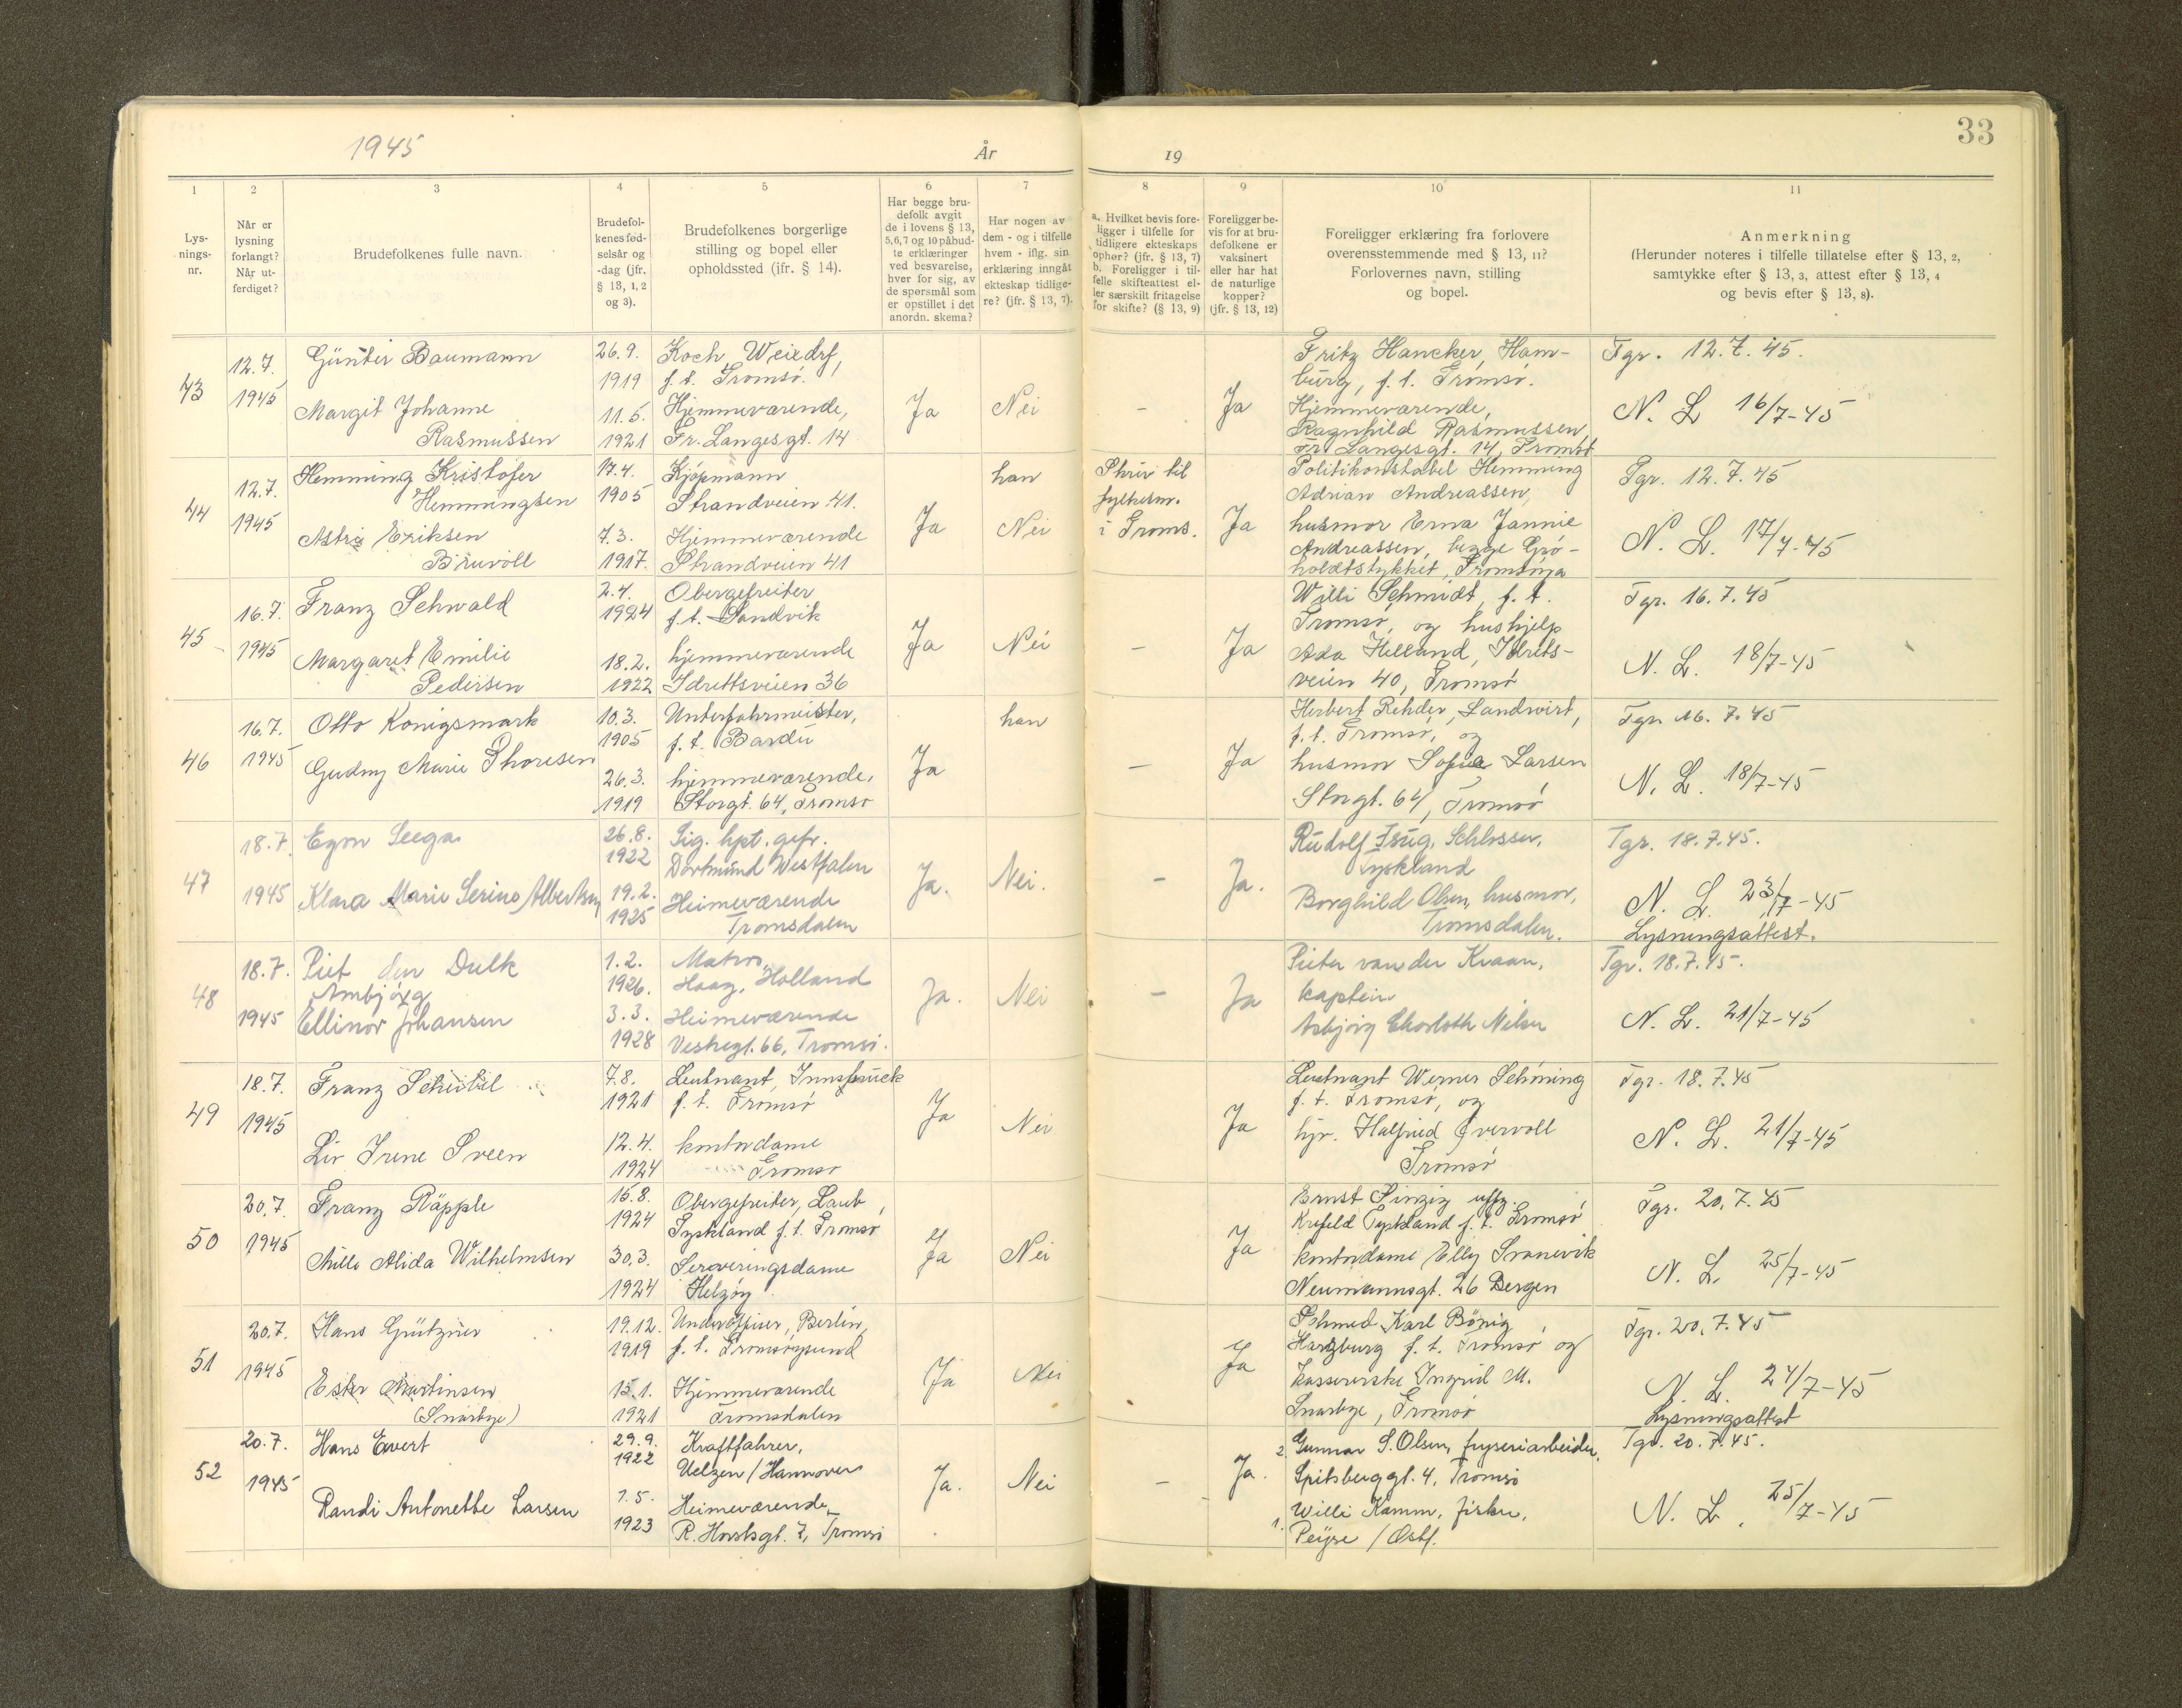 33
1945
År
19
1
2
3
4
5
6
7
8
9
10
11
Lys-
nings-
nr.
Når er
lysning
forlangt?
Når ut-
ferdiget?
Brudefolkenes fulle navn.
Brudefol-
kenes fød-
selsår og
-dag (jfr.
§ 13, 1, 2
og 3).
Brudefolkenes borgerlige
stilling og bopel eller
opholdssted (ifr. § 14).
Har begge bru-
defolk avgit
de i lovens § 13,
5,6,7 og 10 påbud-
te erklæringer
ved besvarelse,
hver for sig, av
de spørsmål som
er opstillet i det
anordn. skema?
Har nogen av
dem - og i tilfelle
hvem - iflg. sin
erklæring inngåt
ekteskap tidlige-
re? (jfr. § 13, 7).
a. Hvilket bevis fore-
ligger i tilfelle for
tidligere ekteskaps
ophør? (jfr. § 13, 7)
b. Foreligger i til-
felle skifteattest el-
ler særskilt fritagelse
for skifte? (§ 13, 9)
Foreligger be-
vis for at bru-
defolkene er
vaksinert
eller har hat
de naturlige
kopper?
(jfr. § 13, 12)
Foreligger erklæring fra forlovere
overensstemmende med § 13, 11?
Forlovernes navn, stilling
og bopel.
Anmerkning
(Herunder noteres i tilfelle tillatelse efter § 13, 2,
samtykke efter § 13, 3, attest efter § 13, 4
og bevis efter § 13, 8).
43
12.7.
1945
Günter Baumann
Margit Johanne
Rasmussen
26.9.
1919
11.5.
1921
Koch, Weixdrf,
f. t. Tromsø.
Hjemmeværende,
Fr. Langesgt. 14
Ja
Nei
-
Ja
Fritz Hancker, Ham-
burg, f. t. Tromsø.
Hjemmeværende,
Ragnhild Rasmussen,
Fr. Langesgt. 14, Tromsø
Tgr. 12.7.45.
N. L. 16/7-45
44
12.7.
1945
Hemming Kristofer
Hemmingsen
Astri Eriksen
Bruvoll
17.4.
1905
7.3.
1917.
Kjøpmann
Strandveien 41.
Hjemmeværende
Strandveien 41
Ja
han
Nei
Skriv til
fylkesm.
i Troms.
Ja
Politikonstabel Hemming
Adrian Andreassen,
husmor Erna Jannie
Andreassen, begge Grø-
holdtstykket, Tromsøya
Tgr. 12.7.45
N. L. 17/7-45
45
16.7.
1945
Franz Schwald
Margaret Emilie
Pedersen
2.4.
1924
18.2.
1922
Obergefreiter
f. t. Sandvik
hjemmeværende
Idrettsveien 36
Ja
Nei
-
Ja
Willi Schmidt, f. t.
Tromsø, og hushjelp
Ada Helland, Idretts-
veien 40, Tromsø
Tgr. 16.7.45
N. L. 18/7-45
46
16.7.
1945
Otto Konigsmark
Gudny Marie Thoresen
10.3.
1905
26.3.
1919
Unterfahrmeister,
f. t. Bardu
hjemmeværende,
Storgt. 64, Tromsø
Ja
han
-
Ja
Herbert Rehder, Landwirt,
f. t. Tromsø, og
husmor Sofie Larsen
Storgt. 64, Tromsø
Tgr. 16.7.45
N. L. 18/7-45
47
18.7.
1945
Egon Seega
Klara Marie Serine Albertsen
26.8.
1922
19.2.
1925
Sig. hpt. gefr.
Dortmund Westfalen
Heimeværende
Tromsdalen
Ja.
Nei.
-
Ja.
Rudolf Krug, Schlosser,
Tyskland
Borghild Olsen, husmor,
Tromsdalen.
Tgr. 18.7.45.
N. L. 23/7-45
Lysningsattest.
48
18.7.
1945
Piet den Dulk
Ambjørg
Ellinor Johansen
1.2.
1926.
3.3.
1928
Matros,
Haag, Holland
Heimeværende
Vestregt. 66, Tromsø.
Ja.
Nei
-
Ja
Pieter van der Kraan,
kaptein
Asbjørg Charloth Nilsen
Tgr. 18.7.45.
N. L. 21/7-45
49
18.7.
1945
Franz
Liv Irene Sveen
7.8.
1921
12.4.
1924
Leutnant, Innsbruck
f. t. Tromsø
kontordame
Tromsø
Ja
Nei
Ja
Leutnant Werner Schöning
f. t. Tromsø, og
hjv. Halfrid Øvervoll
Tromsø
Tgr. 18.7.45
N. L. 21/7-45
50
20.7.
1945
Franz Räpple
Mille Alida Wilhelmsen
15.8.
1924
30.3.
1924
Obergefreiter, Laub,
Tyskland f. t. Tromsø
Serveringsdame
Helgøy
Ja
Nei
Ja
Ernst Sinzig uffz.
Krefeld Tyskland f. t. Tromsø
kontordame Elly Svanevik
Neumannsgt. 26 Bergen
Tgr. 20.7.45
N. L. 25/7-45
51
20.7.
1945
Hans Grützner
Ester Martinsen
(Snarbye)
19.12.
1919
15.1.
1921
Underoffiser, Berlin,
f. t. Tromsøysund
Hjemmeværende
Tromsdalen
Ja
Nei
Ja
Schmed Karl Bönig,
Harzburg f. t. Tromsø og
kassererske Ingrid M.
Snarbye, Tromsø
Tgr. 20.7.45
N. L. 24/7-45
Lysningsattest
52
20.7.
1945
Hans Evert
Randi Antonette Larsen
29.9.
1922
7.5.
1923
Kraftfahrer,
Uelzen / Hannover
Heimeværende,
R. Horstsgt. 7, Tromsø
Ja.
Nei
-
Ja.
2. Gunnar S. Olsen, fryseriarbeider,
Spitsberggt. 4, Tromsø
1. Willi Kamm, fisker,
Peyse / Østf.
Tgr. 20.7.45.
N. L. 25/7-45